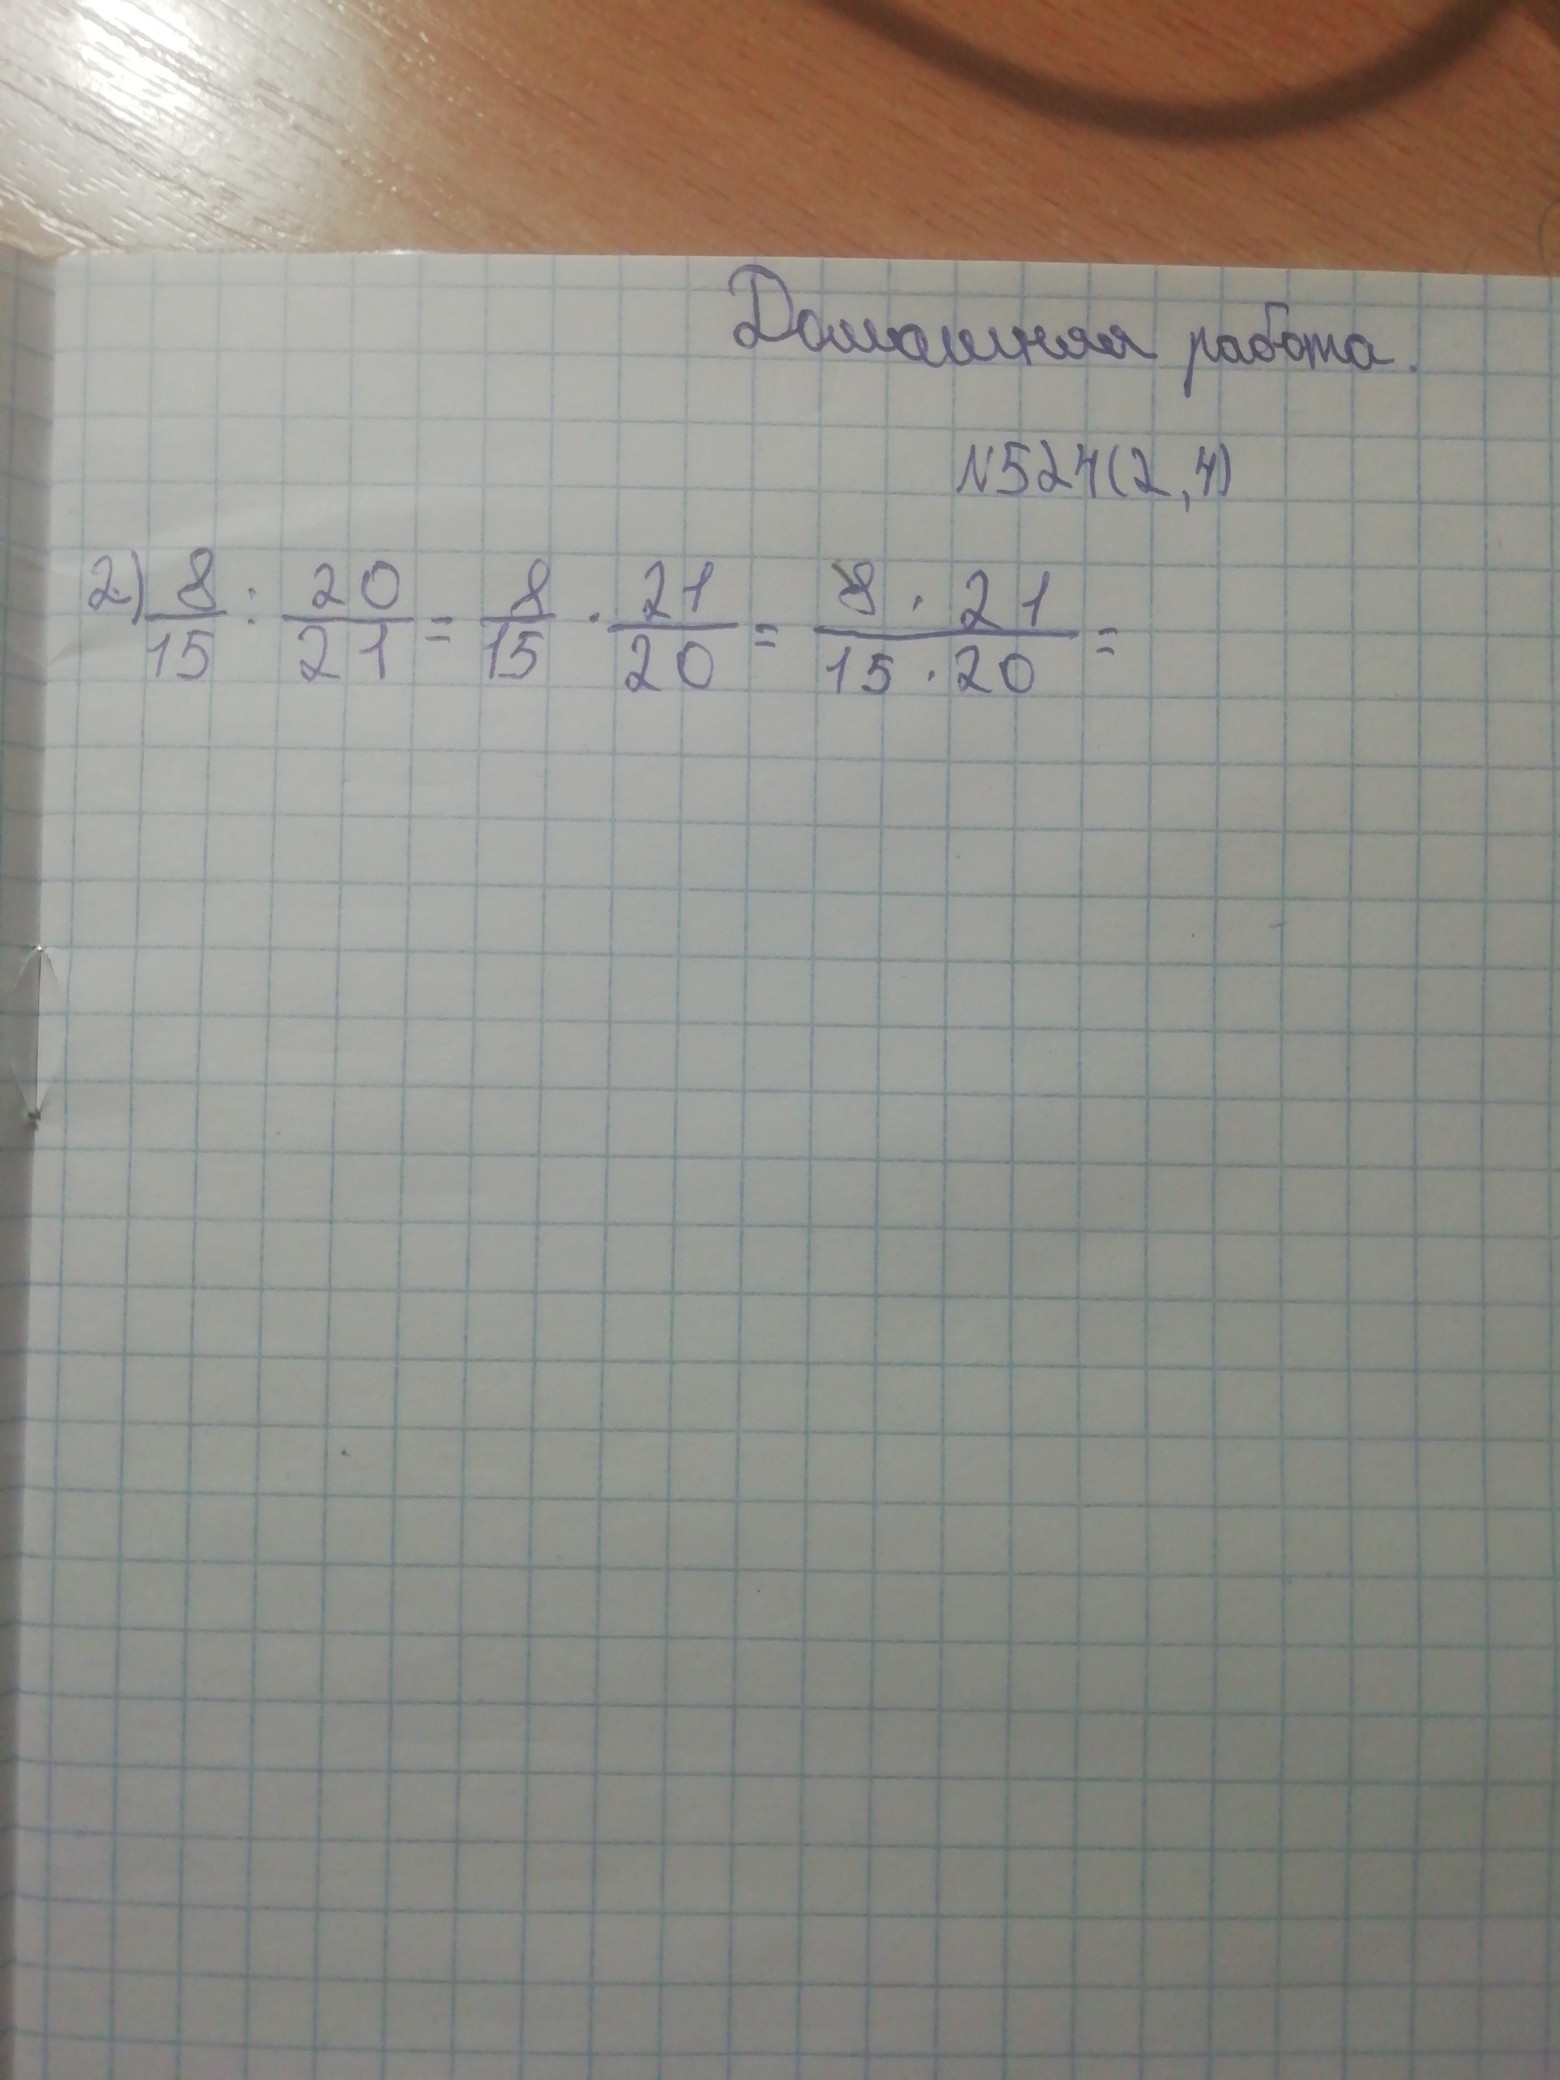 Домашняя работа.
№524(2,4)
2) 8/15 : 20/21 = 8/15 · 21/20 = 8 · 21/15 · 20 =